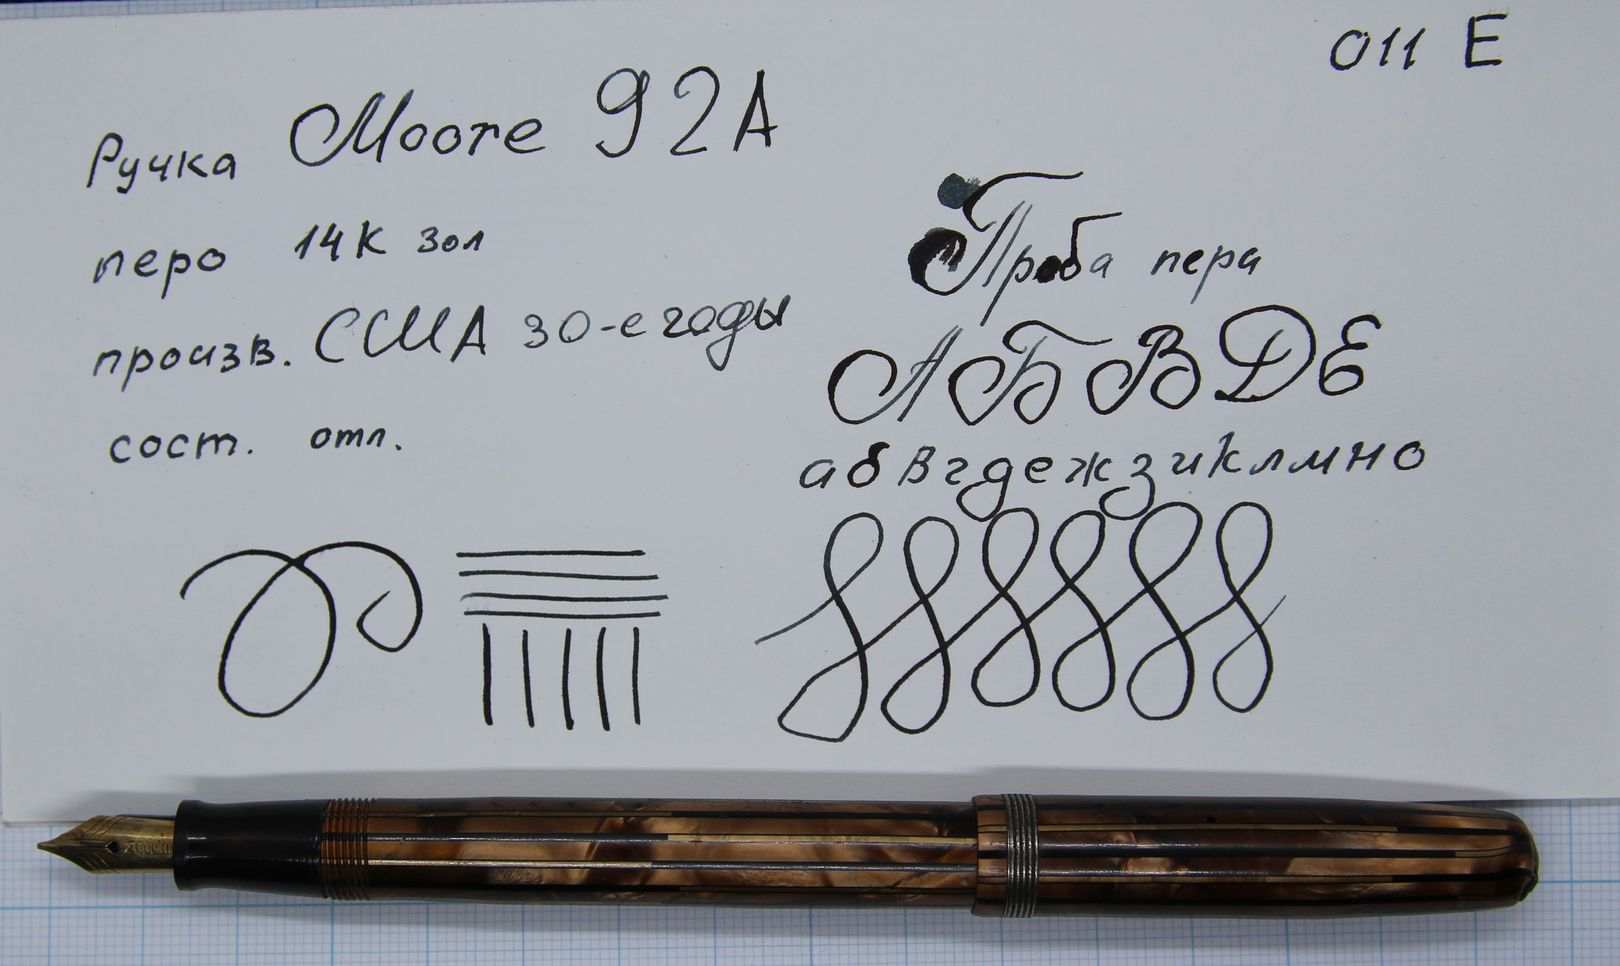 011 E
Ручка Moore 92А
перо 14К зол
произв. США 30-е годы
сост. отл.
Проба пера
А Б В Д Е
а б в г д е ж з и к л м н о